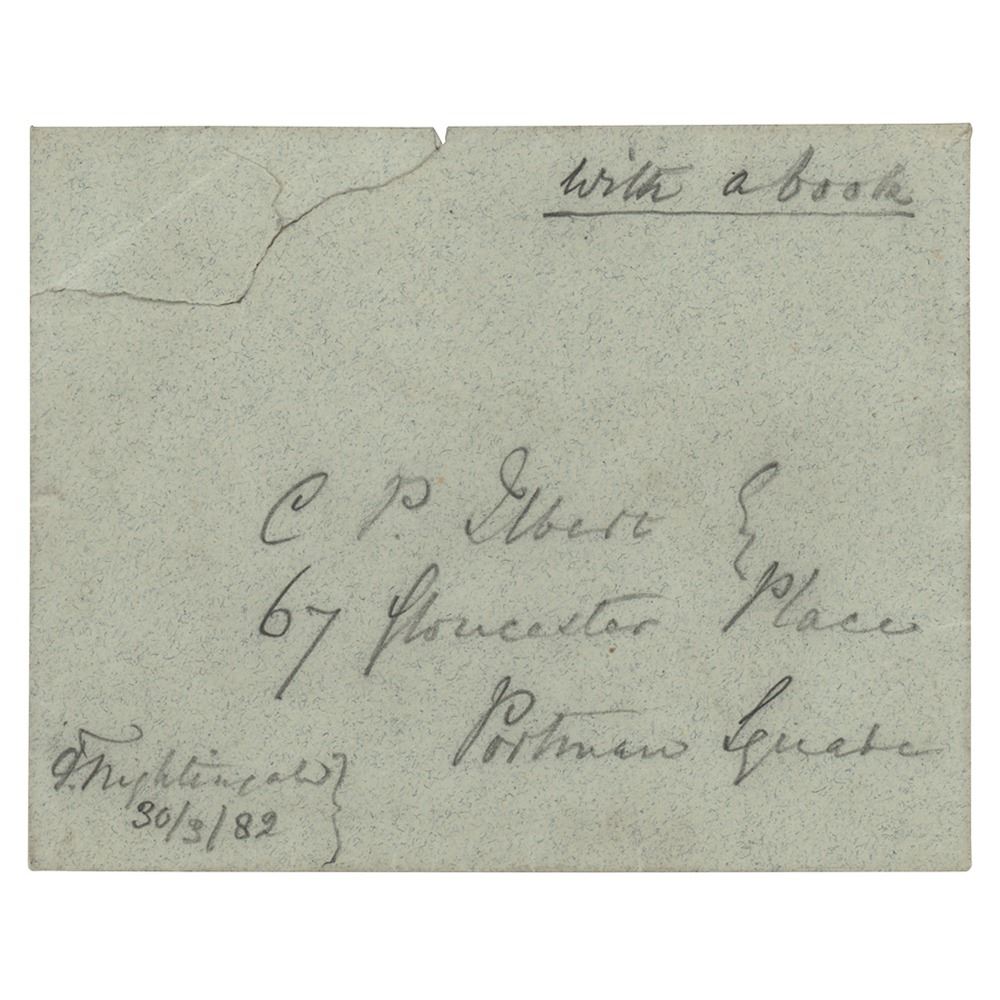 with a book
C P. Ilbert Eq
67 Gloucester Place
Portman Square
F. Nightingale
30/3/82